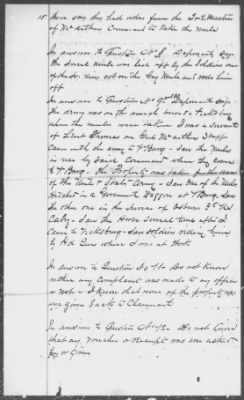 15
here say they had orders from the Qr Master
of McArthurs Command to take the Mules
In answer to Question No 8. Deponent Says
the Sorrel Mule was led off by the Soldiers one
of the Soldiers got on the Gray Mule and rode him
off
In answer to Question No 9 Deponent says
the army was on the march towards Vicksburg
when the mules were taken I was a Servant
of Lieut Thomas on Genl McArthurs Staff
Came with the army to V Burg - Saw the Mules
in use by Said Command when they came
to V Burg. the Property was taken for the use
of the United States Army - I saw one of the Mules
hitched in a Government Waggon at V Burg. Saw
the other one in the stables of Osburn 3rd Ills
Calry - I saw the Horse several times after I
came to Vicksburg - Saw soldiers riding him
by Hd Qurs where I was at Work
In answer to Question No 11 Do not know
whether any Complaint was made to any officer
or not - I know that none of the property was
ever given back to Claimant
In answer to Question No 12. Do not know
that any voucher or receipt was ever asked
for or given